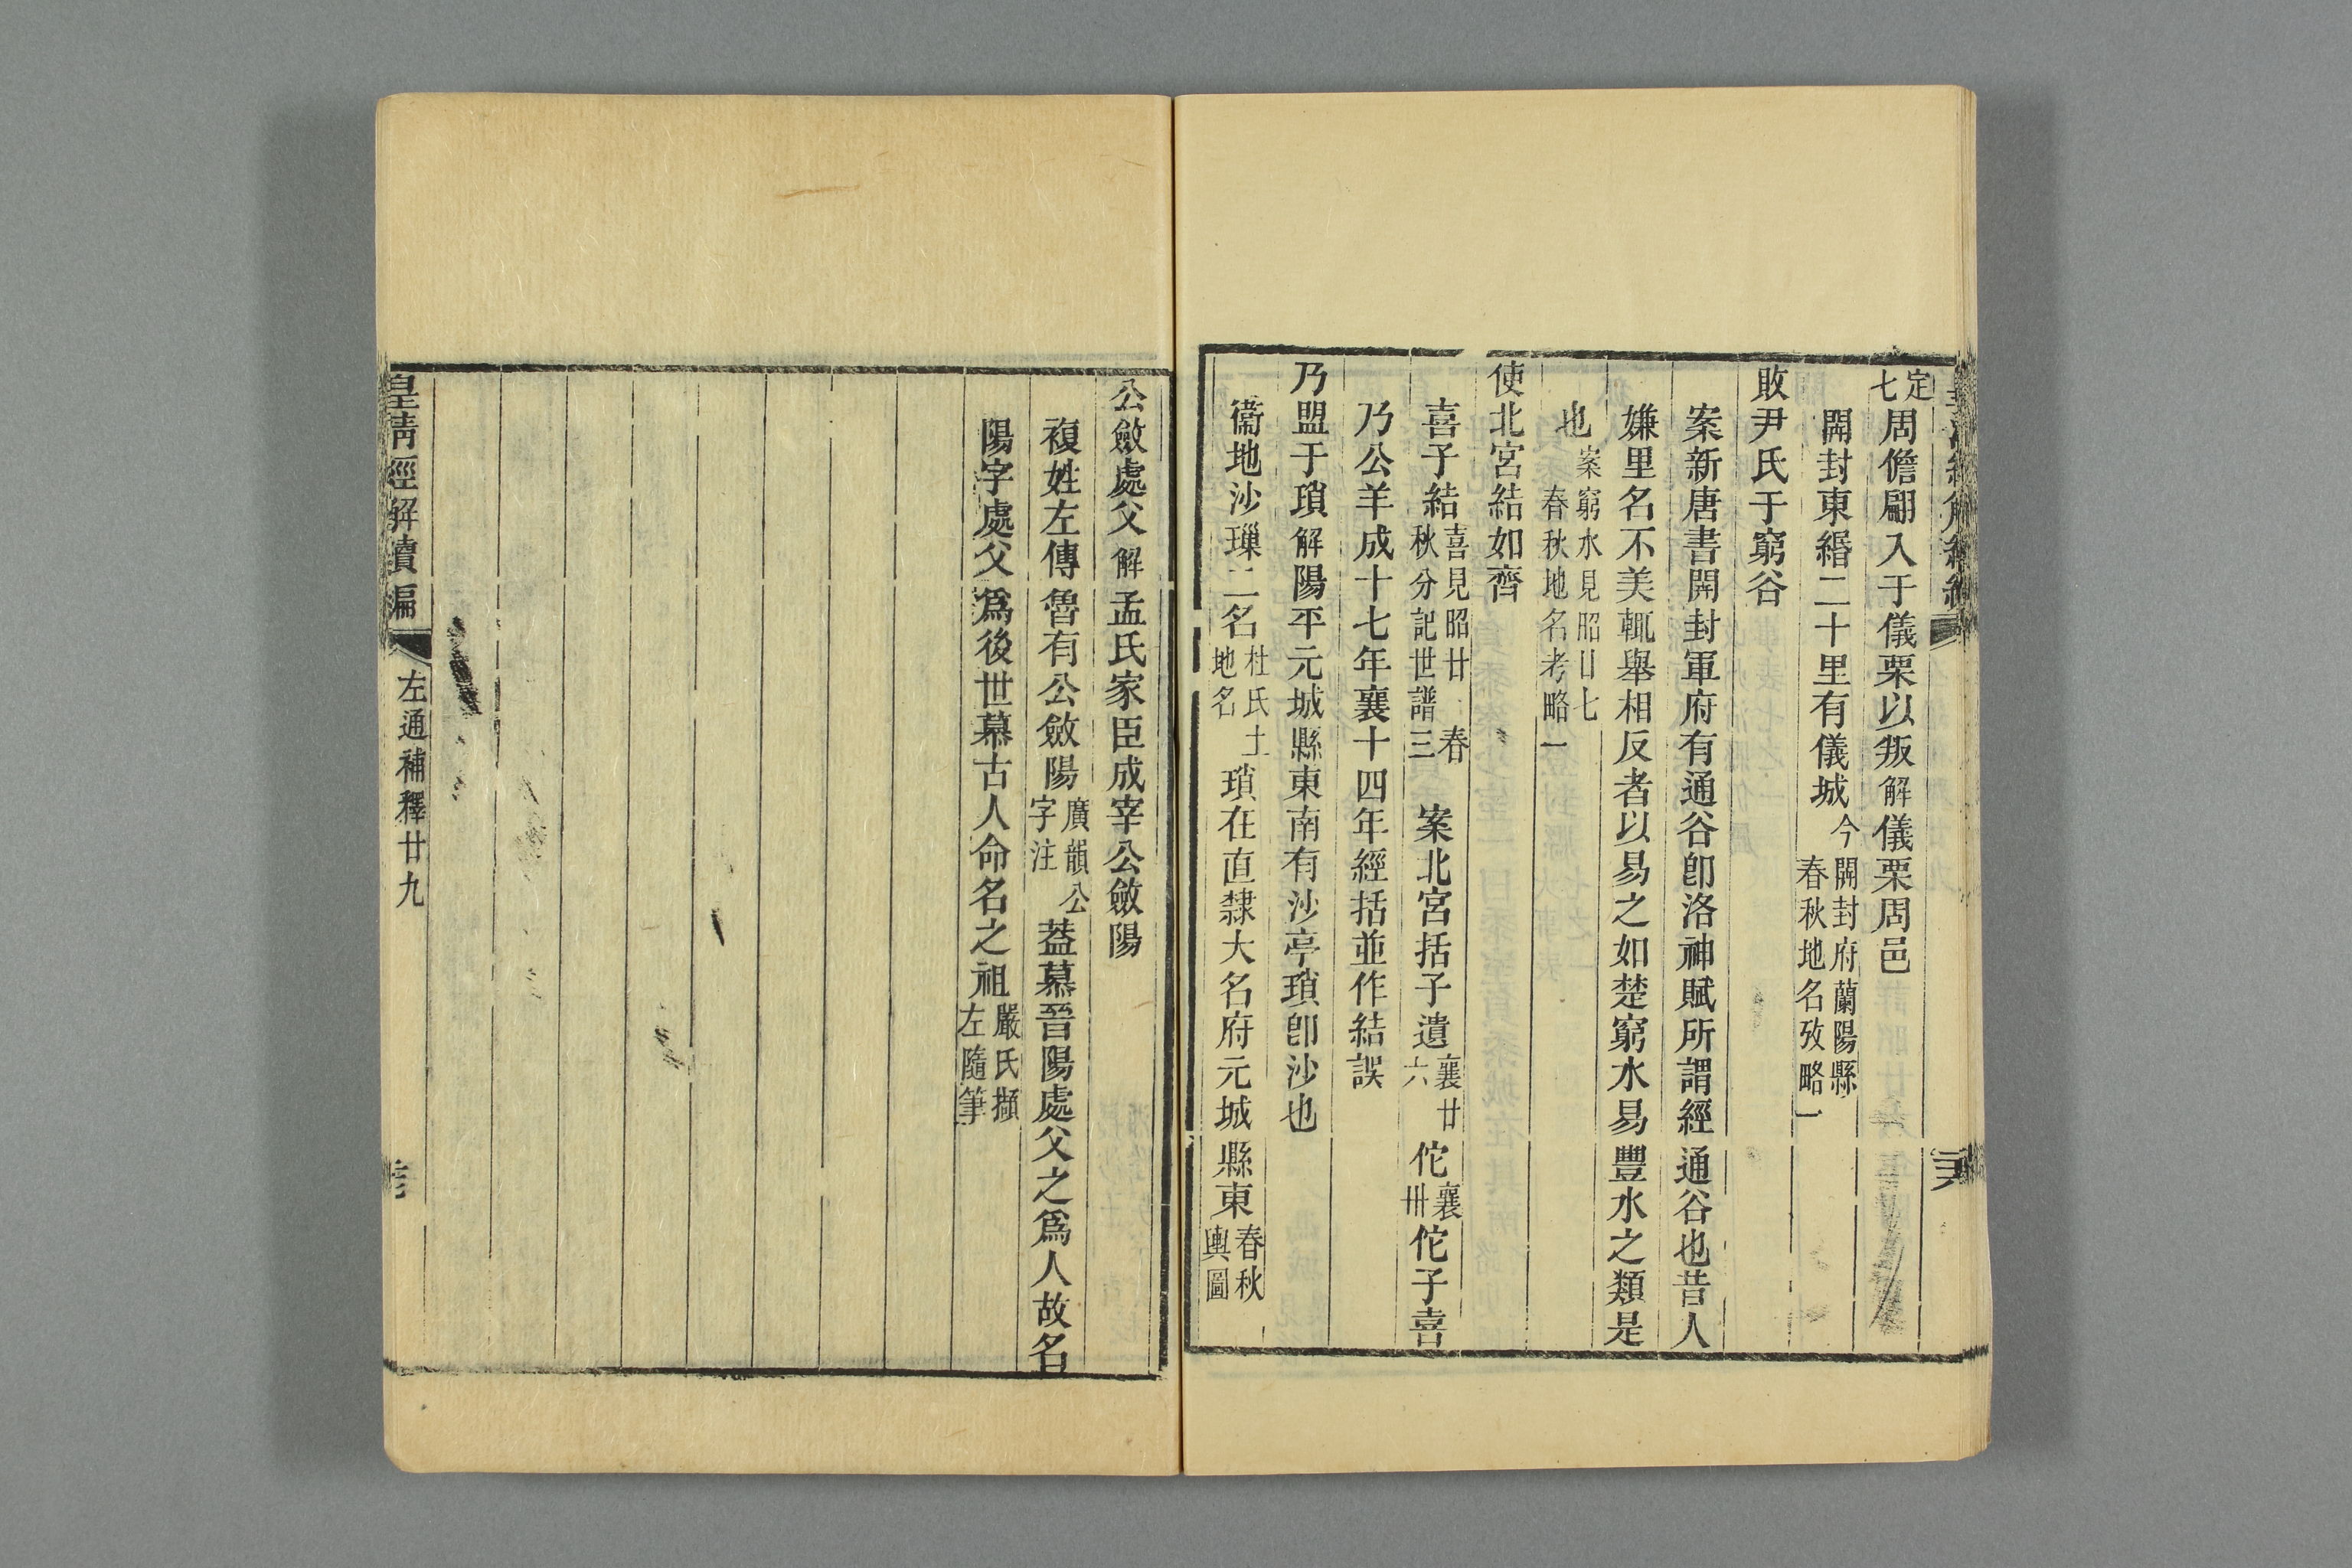 定七周儋翩入于儀栗以叛解儀栗周邑
開封東緡二十里有儀城今開封府蘭陽縣春秋地名攷略一
敗尹氏于窮谷
案新唐書開封軍府有通谷卽洛神賦所謂經通谷也昔人
嫌里名不美輒舉相反者以易之如楚窮水易豐水之類是
也案窮水見昭廿七春秋地名考略一
使北宮結如齊
喜子結喜見昭廿春秋分記世譜三案北宮括子遺襄廿六佗襄卅佗子喜
乃公羊成十七年襄十四年經括並作結誤
乃盟于瑣解陽平元城縣東南有沙亭瑣卽沙也
衞地沙璅二名杜氏土地名瑣在直隸大名府元城縣東春秋輿圖
公斂處父解孟氏家臣成宰公斂陽
複姓左傳魯有公斂陽廣韻公字注葢慕晉陽處父之爲人故名
陽字處父爲後世慕古人命名之祖嚴氏擷左隨筆
皇清經解續編
左通補釋廿九